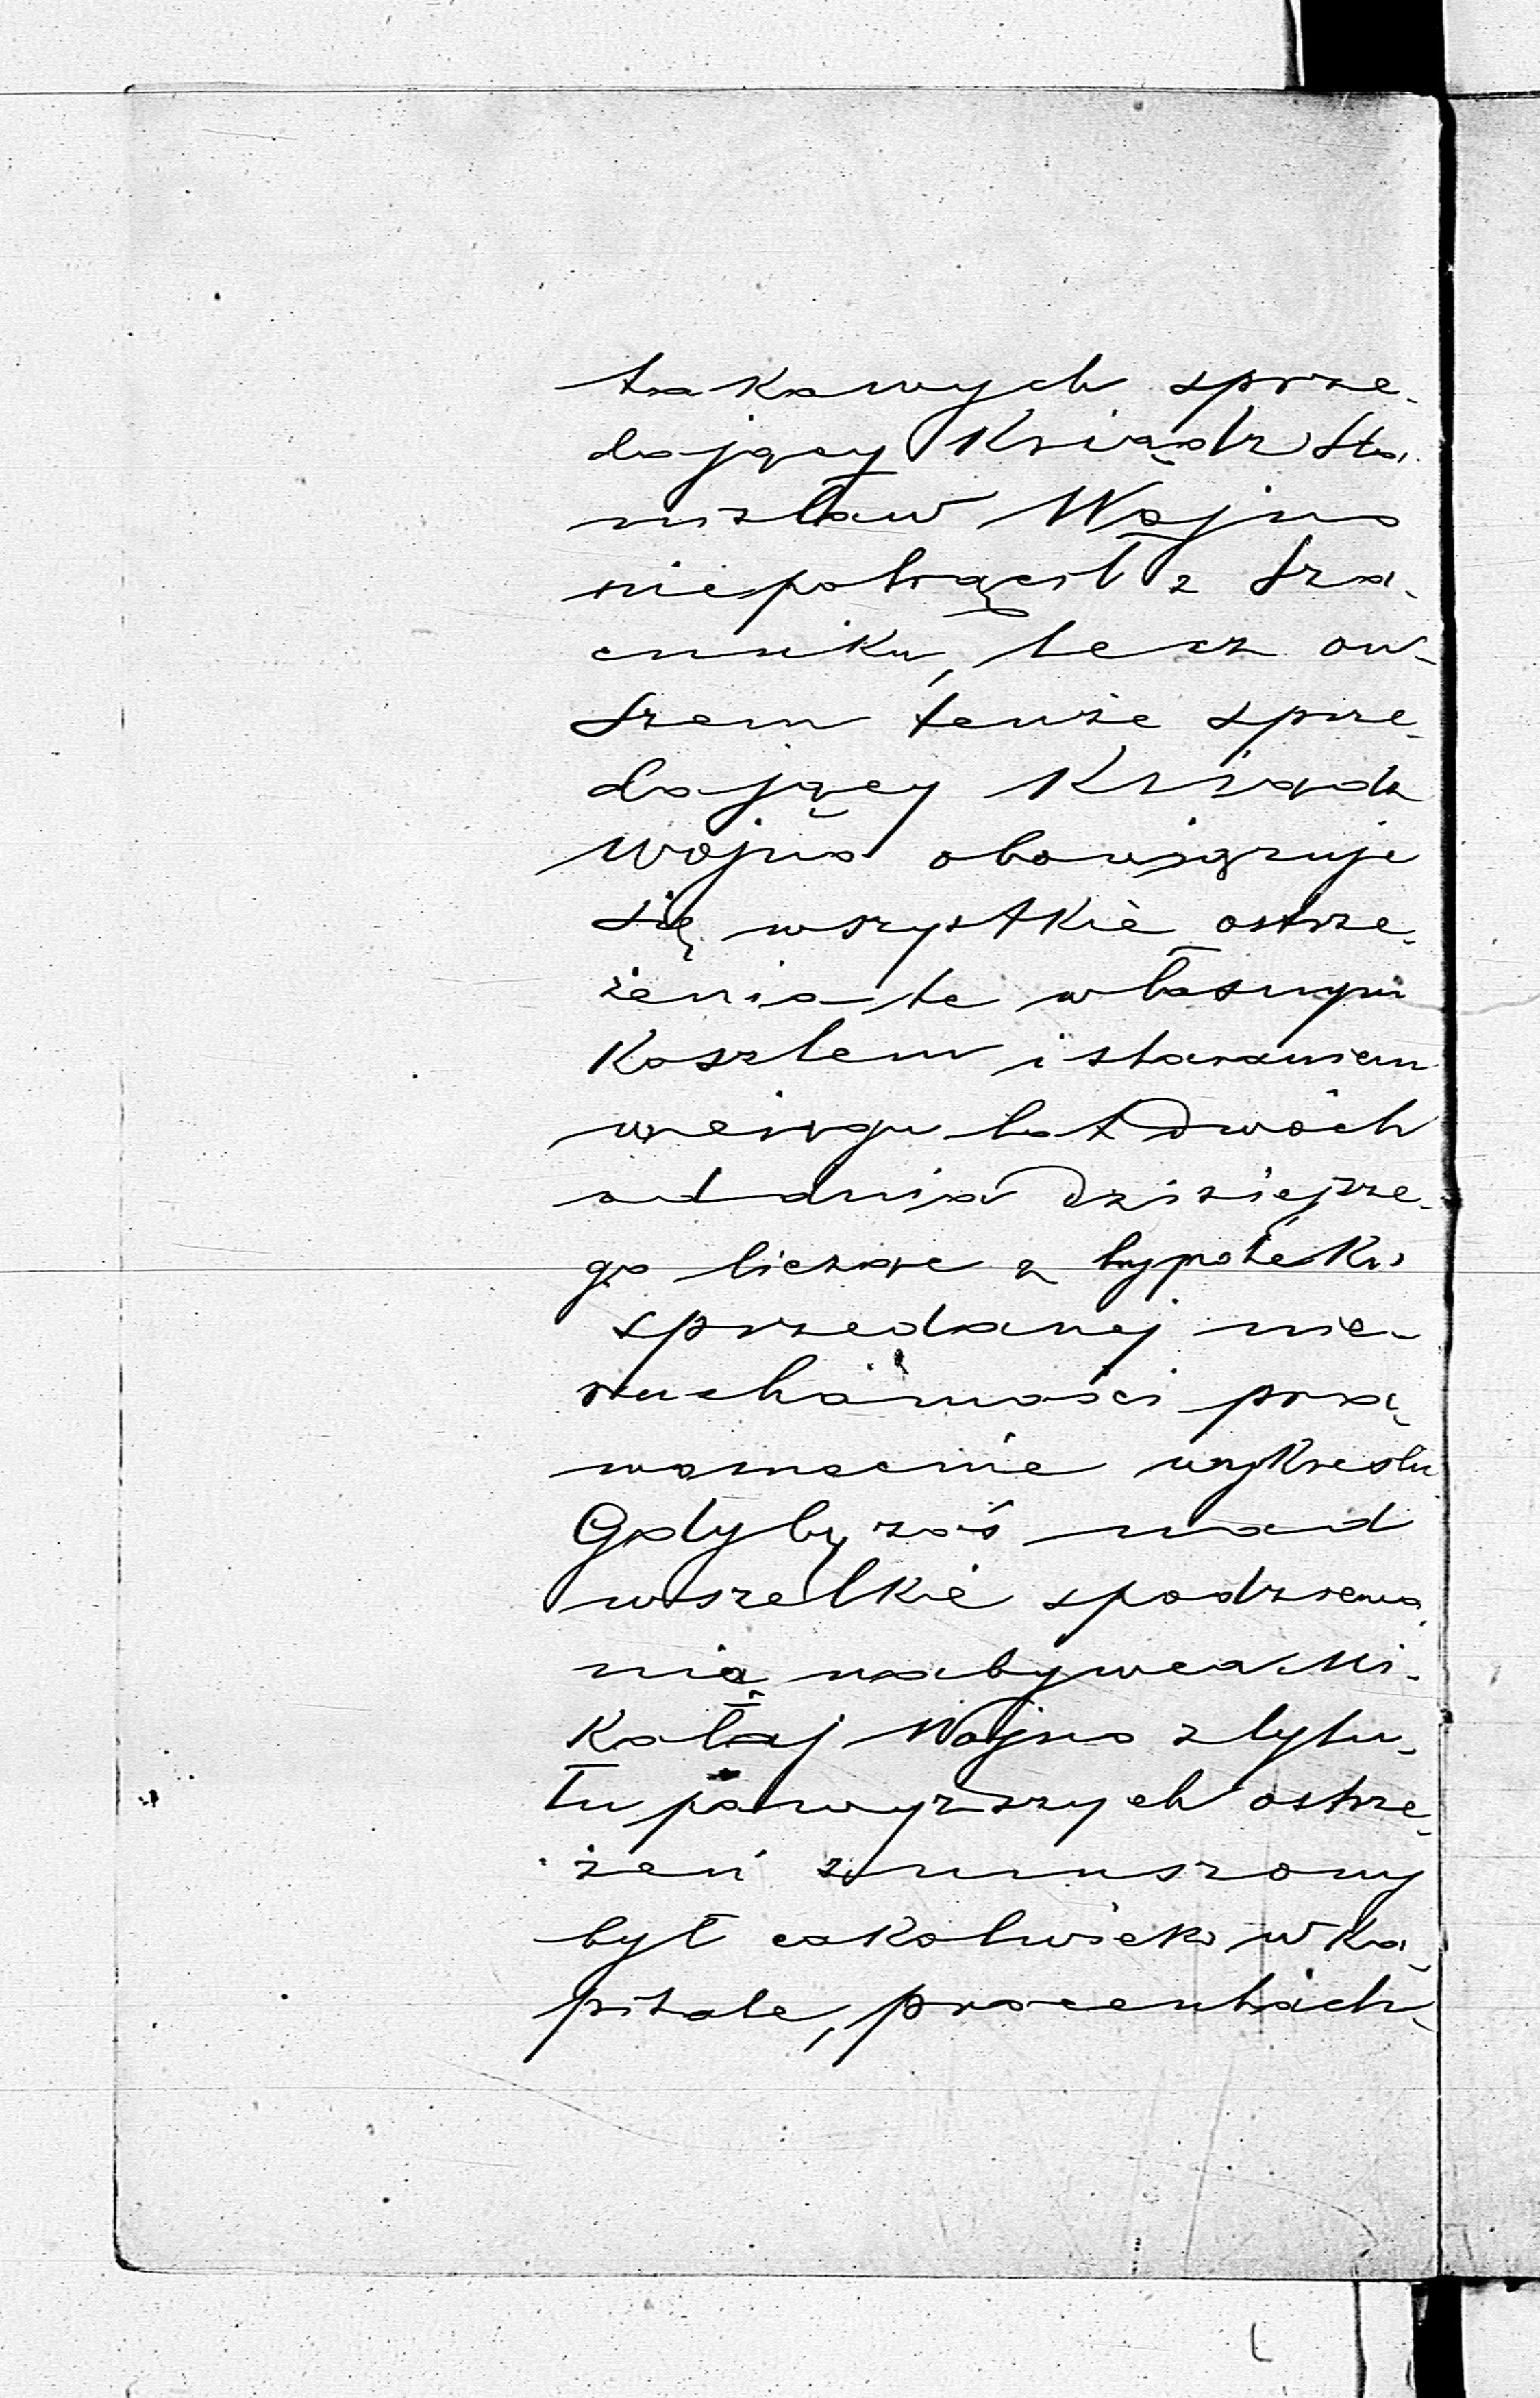 takowych sprze-
dający Ksiądz Sta-
nisław Wojno
niepotrącił z sza-
cunku, lecz ow-
szem tenże sprze-
dający Ksiądz
Wojno obowiązuje
się wszystkie ostrze-
żenia te własnym
kosztem i staraniem
wciągu lat dwóch
od dnia dzisiejsze-
go licząc z hypoteki
sprzedanej nie-
ruchomości pra-
womocnie wykreśli
Gdyby zaś nad
wszelkie spodziewa-
nia nabywca Mi-
kołaj Wojno z tytu-
łu powyższych ostrze-
żeń zmuszony
był cokolwiek w ka-
pitale, procentach